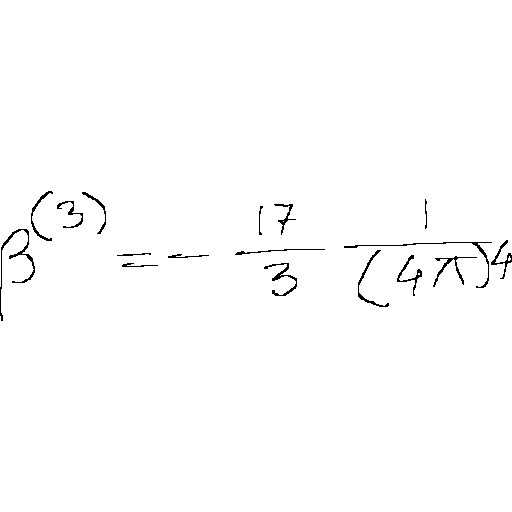 \beta^{(3)} = - \frac{17}{3} \frac{1}{(4\pi)^4}